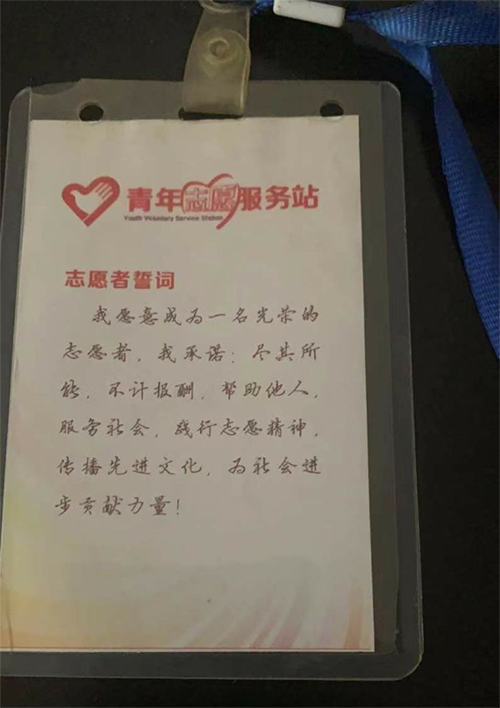 青年志愿服务站
Youth Voluntary Service Station
志愿者誓词
我愿意成为一名光荣的
志愿者，我承诺：尽其所
能，不计报酬，帮助他人，
服务社会，践行志愿精神，
传播先进文化，为社会进
步贡献力量！